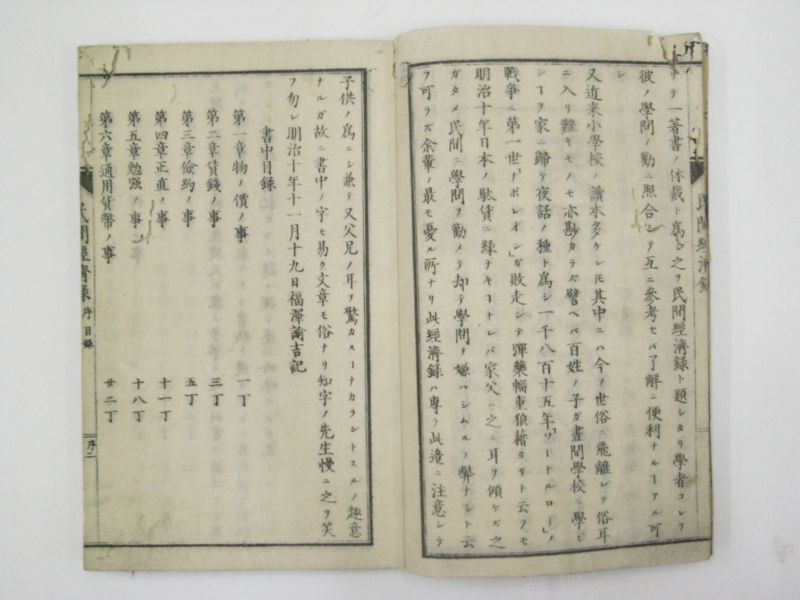 リテ一著書ノ体裁ト為シ之ヲ民間經濟録ト題シタリ學者コレヲ
彼ノ學問ノ勸ニ照合シテ互ニ參考セバ了解ニ便利ナルヿアル可
シ
又近來小學校ノ讀本多ケレ𪜈其中ニハ今ノ世俗ニ飛離レテ俗耳
ニ入リ難キモノモ亦尠カラズ譬ヘバ百姓ノ子ガ晝間學校ニ學ビ
シヿヲ家ニ歸テ夜話ノ種ト為シ一千八百十五年「ワートルロー」ノ
戰爭ニ第一世「ナポレオン」ガ敗走シテ彈藥輜重狼藉タリト云フモ
明治十年日本ノ駄賃ニ縁ナキヿナレバ家父ハ之ニ耳ヲ傾ケズ之
ガタメ民間ニ學問ヲ勸メテ却テ學問ヲ嫌ハシムルノ弊ナシト云
フ可ラズ余輩ノ最モ憂ル所ナリ此經濟録ハ專ラ此邊ニ注意シテ
民間經濟録
子供ノ為ニシ兼テ又父兄ノ耳ヲ驚カスヿナカラントスルノ趣意
ナルガ故ニ書中ノ字モ易ク文章モ俗ナリ知字ノ先生慢ニ之ヲ笑
フ勿レ明治十年十一月十九日福澤諭吉記
書中目録
第一章物ノ價ノ事 一丁
第二章賃錢ノ事 三丁
第三章儉約ノ事 五丁
第四章正直ノ事 十一丁
第五章勉強ノ事 十八丁
第六章通用貨幣ノ事 廿二丁
民間經濟録 序 目録 序二